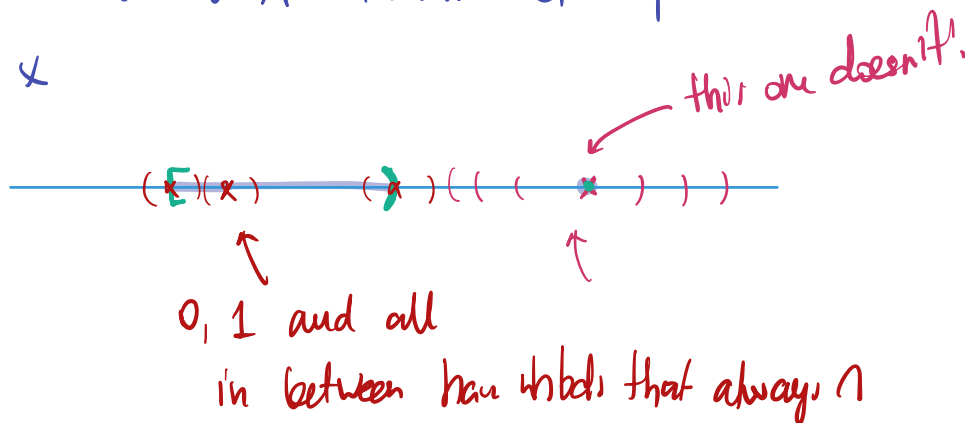 x
this one doesn't!
0, 1 and all
in between have nhbds that always ∩